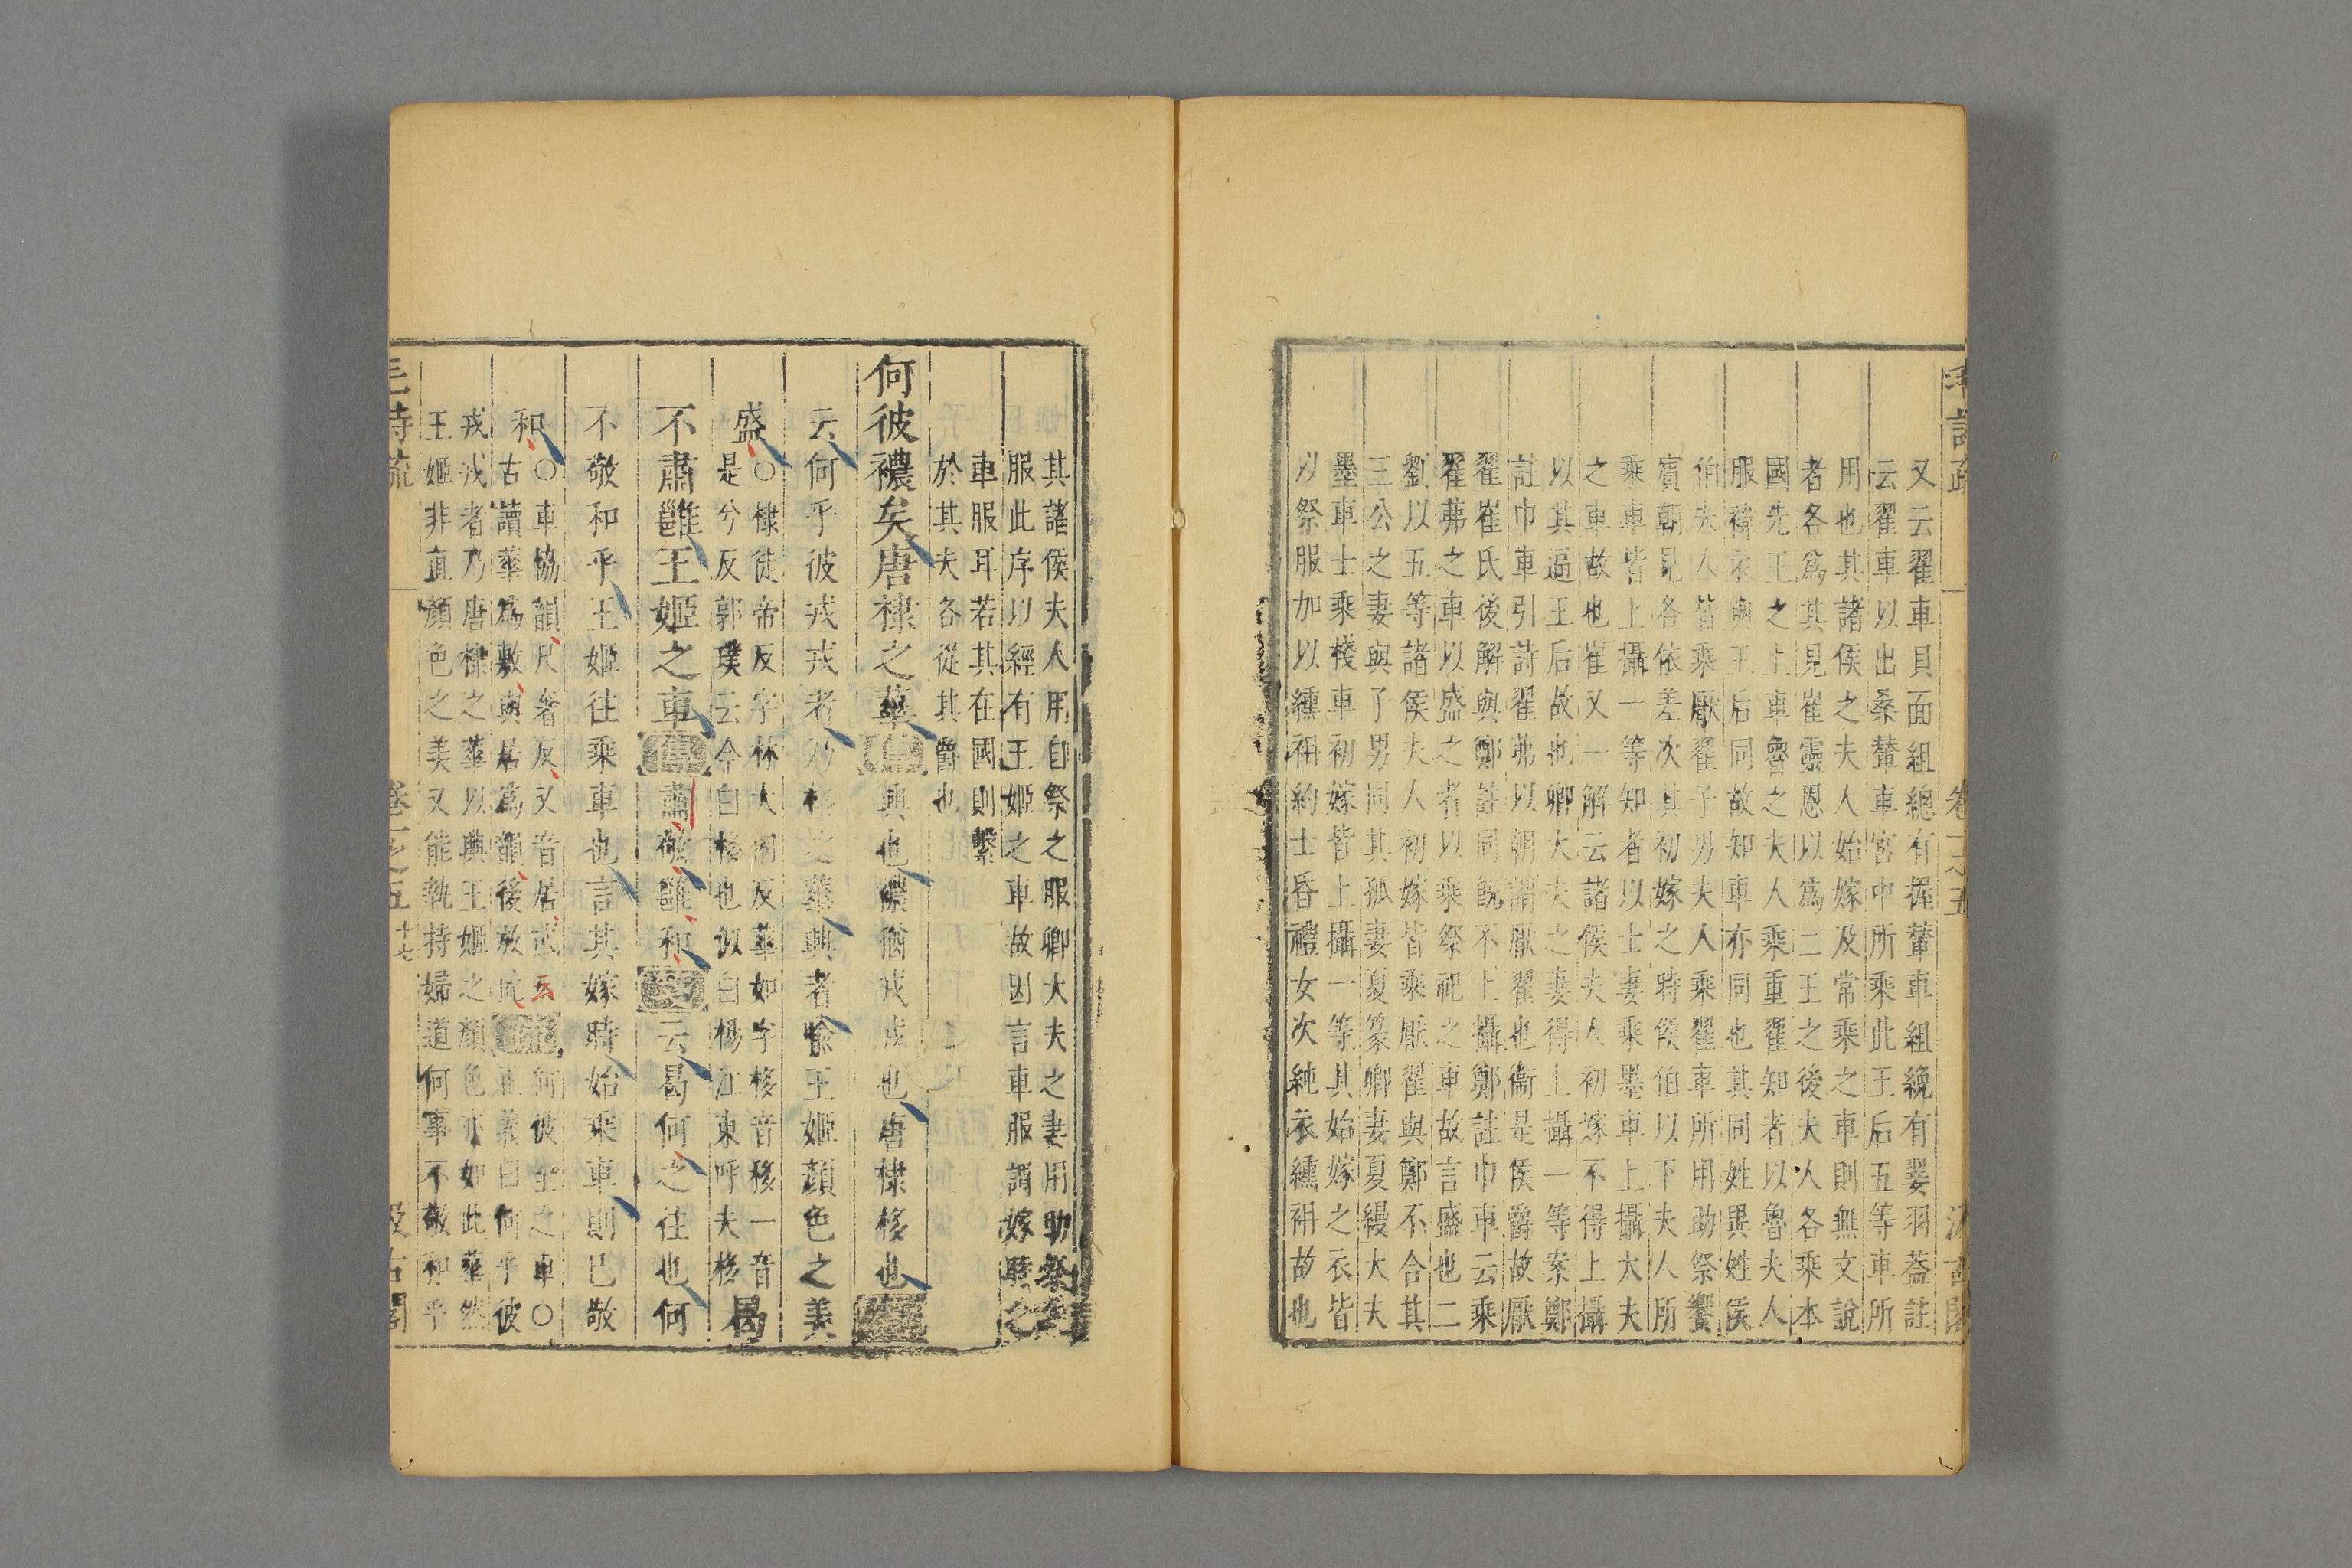 又云翟車貝面組總有握輦車組輓有翣羽葢註
云翟車以出桑輦車宮中所乘此王后五等車所
用也其諸侯之夫人始嫁及常乘之車則無文說
者各爲其見崔靈恩以爲二王之後夫人各乘本
國先王之上車魯之夫人乘重翟知者以魯夫人
服褘衣與王后同故知車亦同也其同姓異姓侯
伯夫人皆乘厭翟子男夫人乘翟車所用助祭饗
賓朝見各依差次其初嫁之時侯伯以下夫人所
乘車皆上攝一等知者以士妻乘墨車上攝大夫
之車故也崔又一解云諸侯夫人初嫁不得上攝
以其逼王后故也卿大夫之妻得上攝一等案鄭
註巾車引詩翟茀以朝謂厭翟也衞是侯爵故厭
翟崔氏後解與鄭註同旣不上攝鄭註巾車云乘
翟茀之車以盛之者以乘祭祀之車故言盛也二
劉以五等諸侯夫人初嫁皆乘厭翟與鄭不合其
三公之妻與子男同其孤妻夏篆卿妻夏縵大夫
墨車士乘棧車初嫁皆上攝一等其始嫁之衣皆
以祭服加以纁袡約士昏禮女次純衣纁袡故也
其諸侯夫人用自祭之服卿大夫之妻用助祭
服此序以經有王姬之車故因言車服謂嫁時之
車服耳若其在國則繫
於其夫各從其爵也
何彼襛矣唐棣之華傳興也襛猶戎戎也唐棣栘也箋
云何乎彼戎戎者乃栘之華興者喻王姬顏色之美
盛
○棣徒帝反字林大內反華如字栘音移一音
是兮反郭璞云今白栘也似白楊江東呼夫栘
曷
不肅雝王姬之車傳肅敬雝和箋云曷何之往也何
不敬和乎王姬往乘車也言其嫁時始乘車則已敬
和
○車協韻尺奢反又音居或云
古讀華爲敷與居爲韻後放此
疏
何彼至之車○
正義曰何乎彼
戎戎者乃唐棣之華以興王姬之顏色亦如此華然
王姬非直顏色之美又能執持婦道何事不敬和乎
毛詩疏 卷一之五 十七 汲古閣